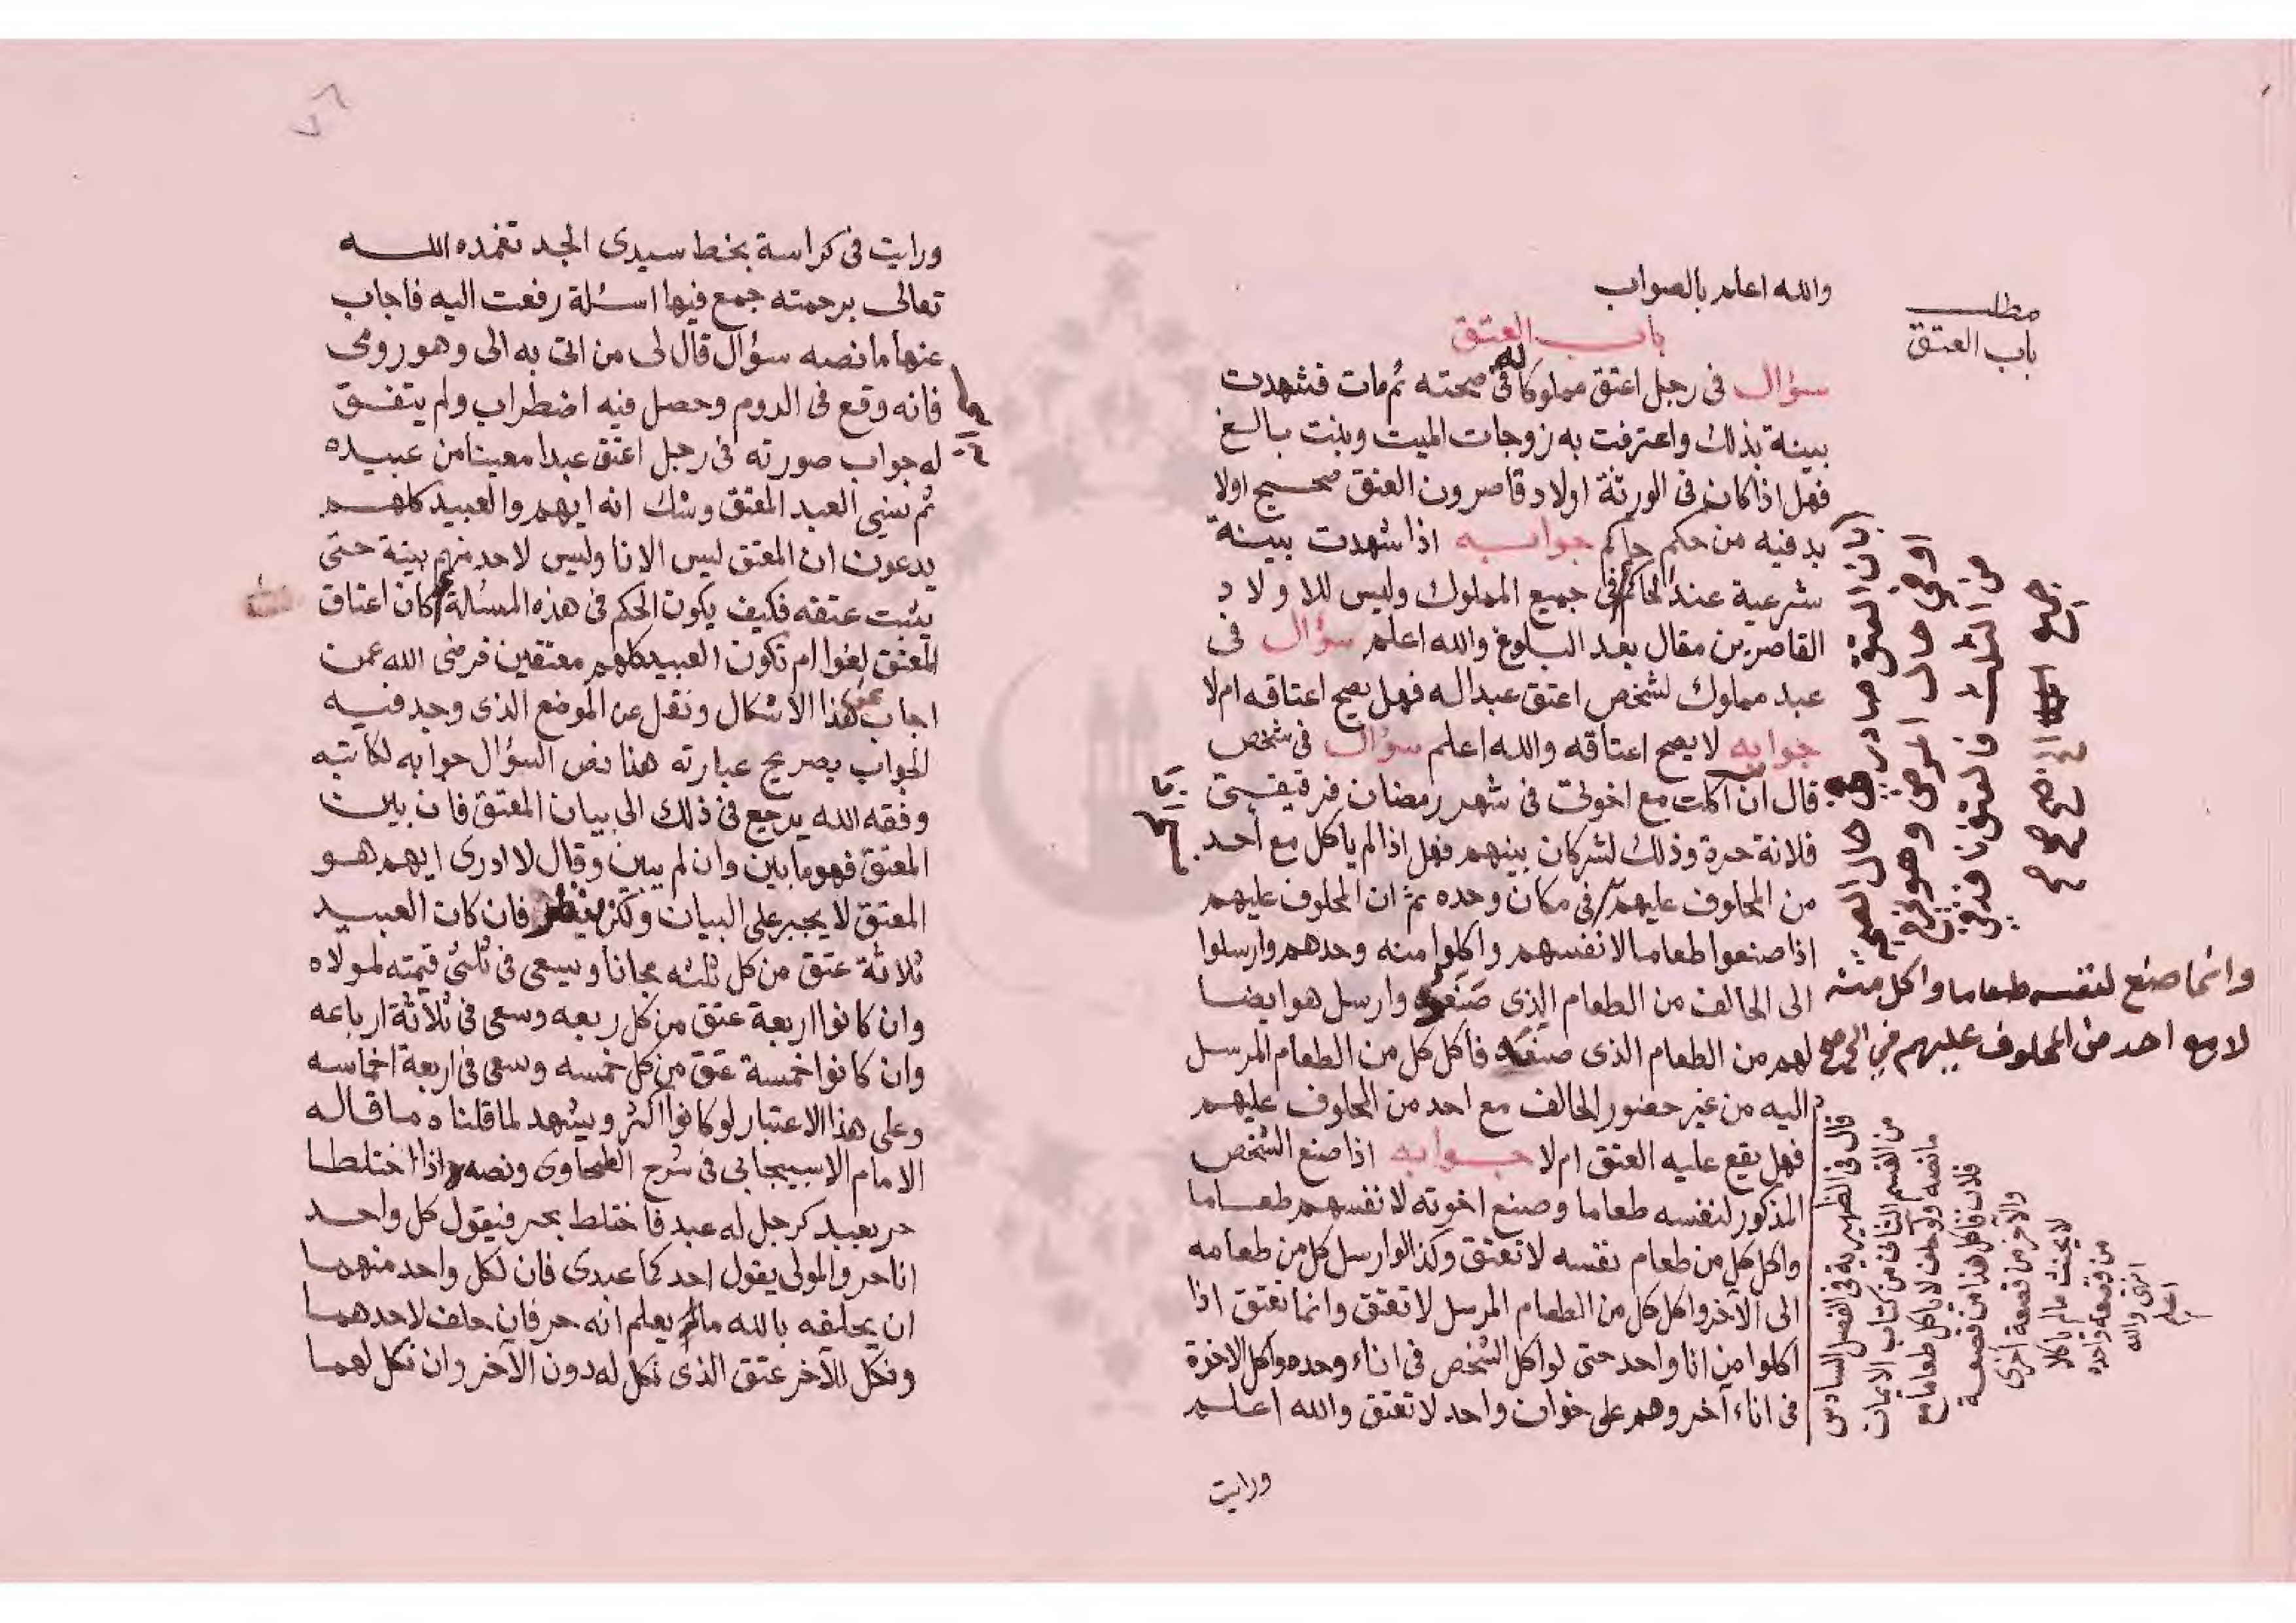 والله اعلم بالصواب
باب العتق
سؤال فى رجل اعتق مملوكا له فى صحته ثم مات فشهدت
بينة بذلك واعترفت به زوجات الميت وبنت بالغ
فهل اذا كان فى الورثة اولاد قاصرون العتق صحيح اولا
بد فيه من حكم حاكم جوابه اذا شهدت بينة
شرعية عند الحاكم فى جميع المملوك وليس للاولاد
القاصرين مقال بعد البلوغ والله اعلم سؤال فى
عبد مملوك لشخص اعتق عبدا له فهل يصح اعتاقه ام لا
جوابه لا يصح اعتاقه والله اعلم سؤال فى شخص
قال ان اكلت مع اخوتى فى شهر رمضان فرقيقتى
فلانة حرة وذلك لشر كان بينهم فهل اذا لم ياكل مع احد
من المحلوف عليهم فى مكان وحده ثم ان المحلوف عليهم
اذا صنعوا طعاما لانفسهم واكلوا منه وحدهم وارسلوا
الى الحالف من الطعام الذى صنعوه وارسل هو ايضا
لهم من الطعام الذى صنعه فاكل كل من الطعام المرسل
اليه من غير حضور الحالف مع احد من المحلوف عليهم
فهل يقع عليه العتق ام لا جوابه اذا صنع الشخص
المذكور لنفسه طعاما وصنع اخوته لانفسهم طعاما
واكل كل من طعام نفسه لا تعتق وكذا لو ارسل كل من طعامه
الى الآخر واكل كل من الطعام المرسل لا تعتق وانما تعتق اذا
اكلوا من انا واحد حتى لو اكل الشخص فى اناء وحده واكل الاخوة
فى اناء آخر وهم على خوان واحد لا تعتق والله اعلم
ورايت
مطلب
باب العتق
كان العتق صادر فى حال الصحة
او فى حال المرض وهو يخرج
من الثلث فالعتق نافذ فى
جميع
وانما صنع لنفسه طعاما واكل منه
لا مع احد من المحلوف عليهم
قال فى الظهيرية فى الفصل السادس
من القسم الثانى من كتاب الايمان
ما نصه ولو حلف لا ياكل طعاما مع
فلان فاكل هذا من قصعة
والآخر من قصعة اخرى
لا يحنث مالم ياكلا
من قصعة واحدة
انتهى والله
اعلم
ورايت فى كراسة بخط سيدى الجد تغمده الله
تعالى برحمته جمع فيها اسئلة رفعت اليه فاجاب
عنها ما نصه سؤال قال لى من اتى به الى وهو رومى
فانه وقع فى الروم وحصل فيه اضطراب ولم يتفق
له جواب صورته فى رجل اعتق عبدا معينا من عبيده
ثم نسى العبد المعتق وشك انه ايهم والعبيد كلهم
يدعون ان المعتق ليس الا انا وليس لاحد منهم بينة حتى
يثبت عتقه فكيف يكون الحكم فى هذه المسئلة اكان اعتاق
المعتق لغوا ام تكون العبيد كلهم معتقين فرضى الله عمن
اجاب عن هذا الاشكال ونقل عن الموضع الذى وجد فيه
الجواب بصريح عبارته هذا نص السؤال جوابه لكاتبه
وفقه الله يرجع فى ذلك الى بيان المعتق فان بين
المعتق فهو ما بين وان لم يبين وقال لا ادرى ايهم هو
المعتق لا يجبر على البيان ولكن ينظر فان كان العبيد
ثلاثة عتق من كل ثلثه مجانا ويسعى فى ثلثى قيمته لمولاه
وان كانوا اربعة عتق من كل ربعه وسعى فى ثلاثة ارباعه
وان كانوا خمسة عتق من كل خمسه وسعى فى اربعة اخماسه
وعلى هذا الاعتبار لو كانوا اكثر ويشهد لما قلناه ما قاله
الامام الاسبيجابى فى شرح الطحاوى ونصه واذا اختلط
حر بعبد كرجل له عبد فاختلط بحر فيقول كل واحد
انا حر والمولى يقول احدكما عبدى فان لكل واحد منهما
ان يحلفه بالله ما يعلم انه حر فان حلف لاحدهما
ونكل للآخر عتق الذى نكل له دون الآخر وان نكل لهما